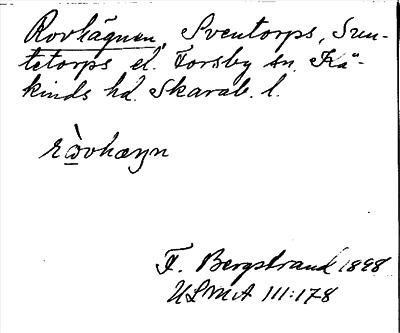 Rovhägnen, Sventorps, Sun-
tetorps el. Forsby sn. Kå-
kinds hd. Skarab. l.
ròvhæŋn
F. Bergstrand 1898
ULMA 111:178